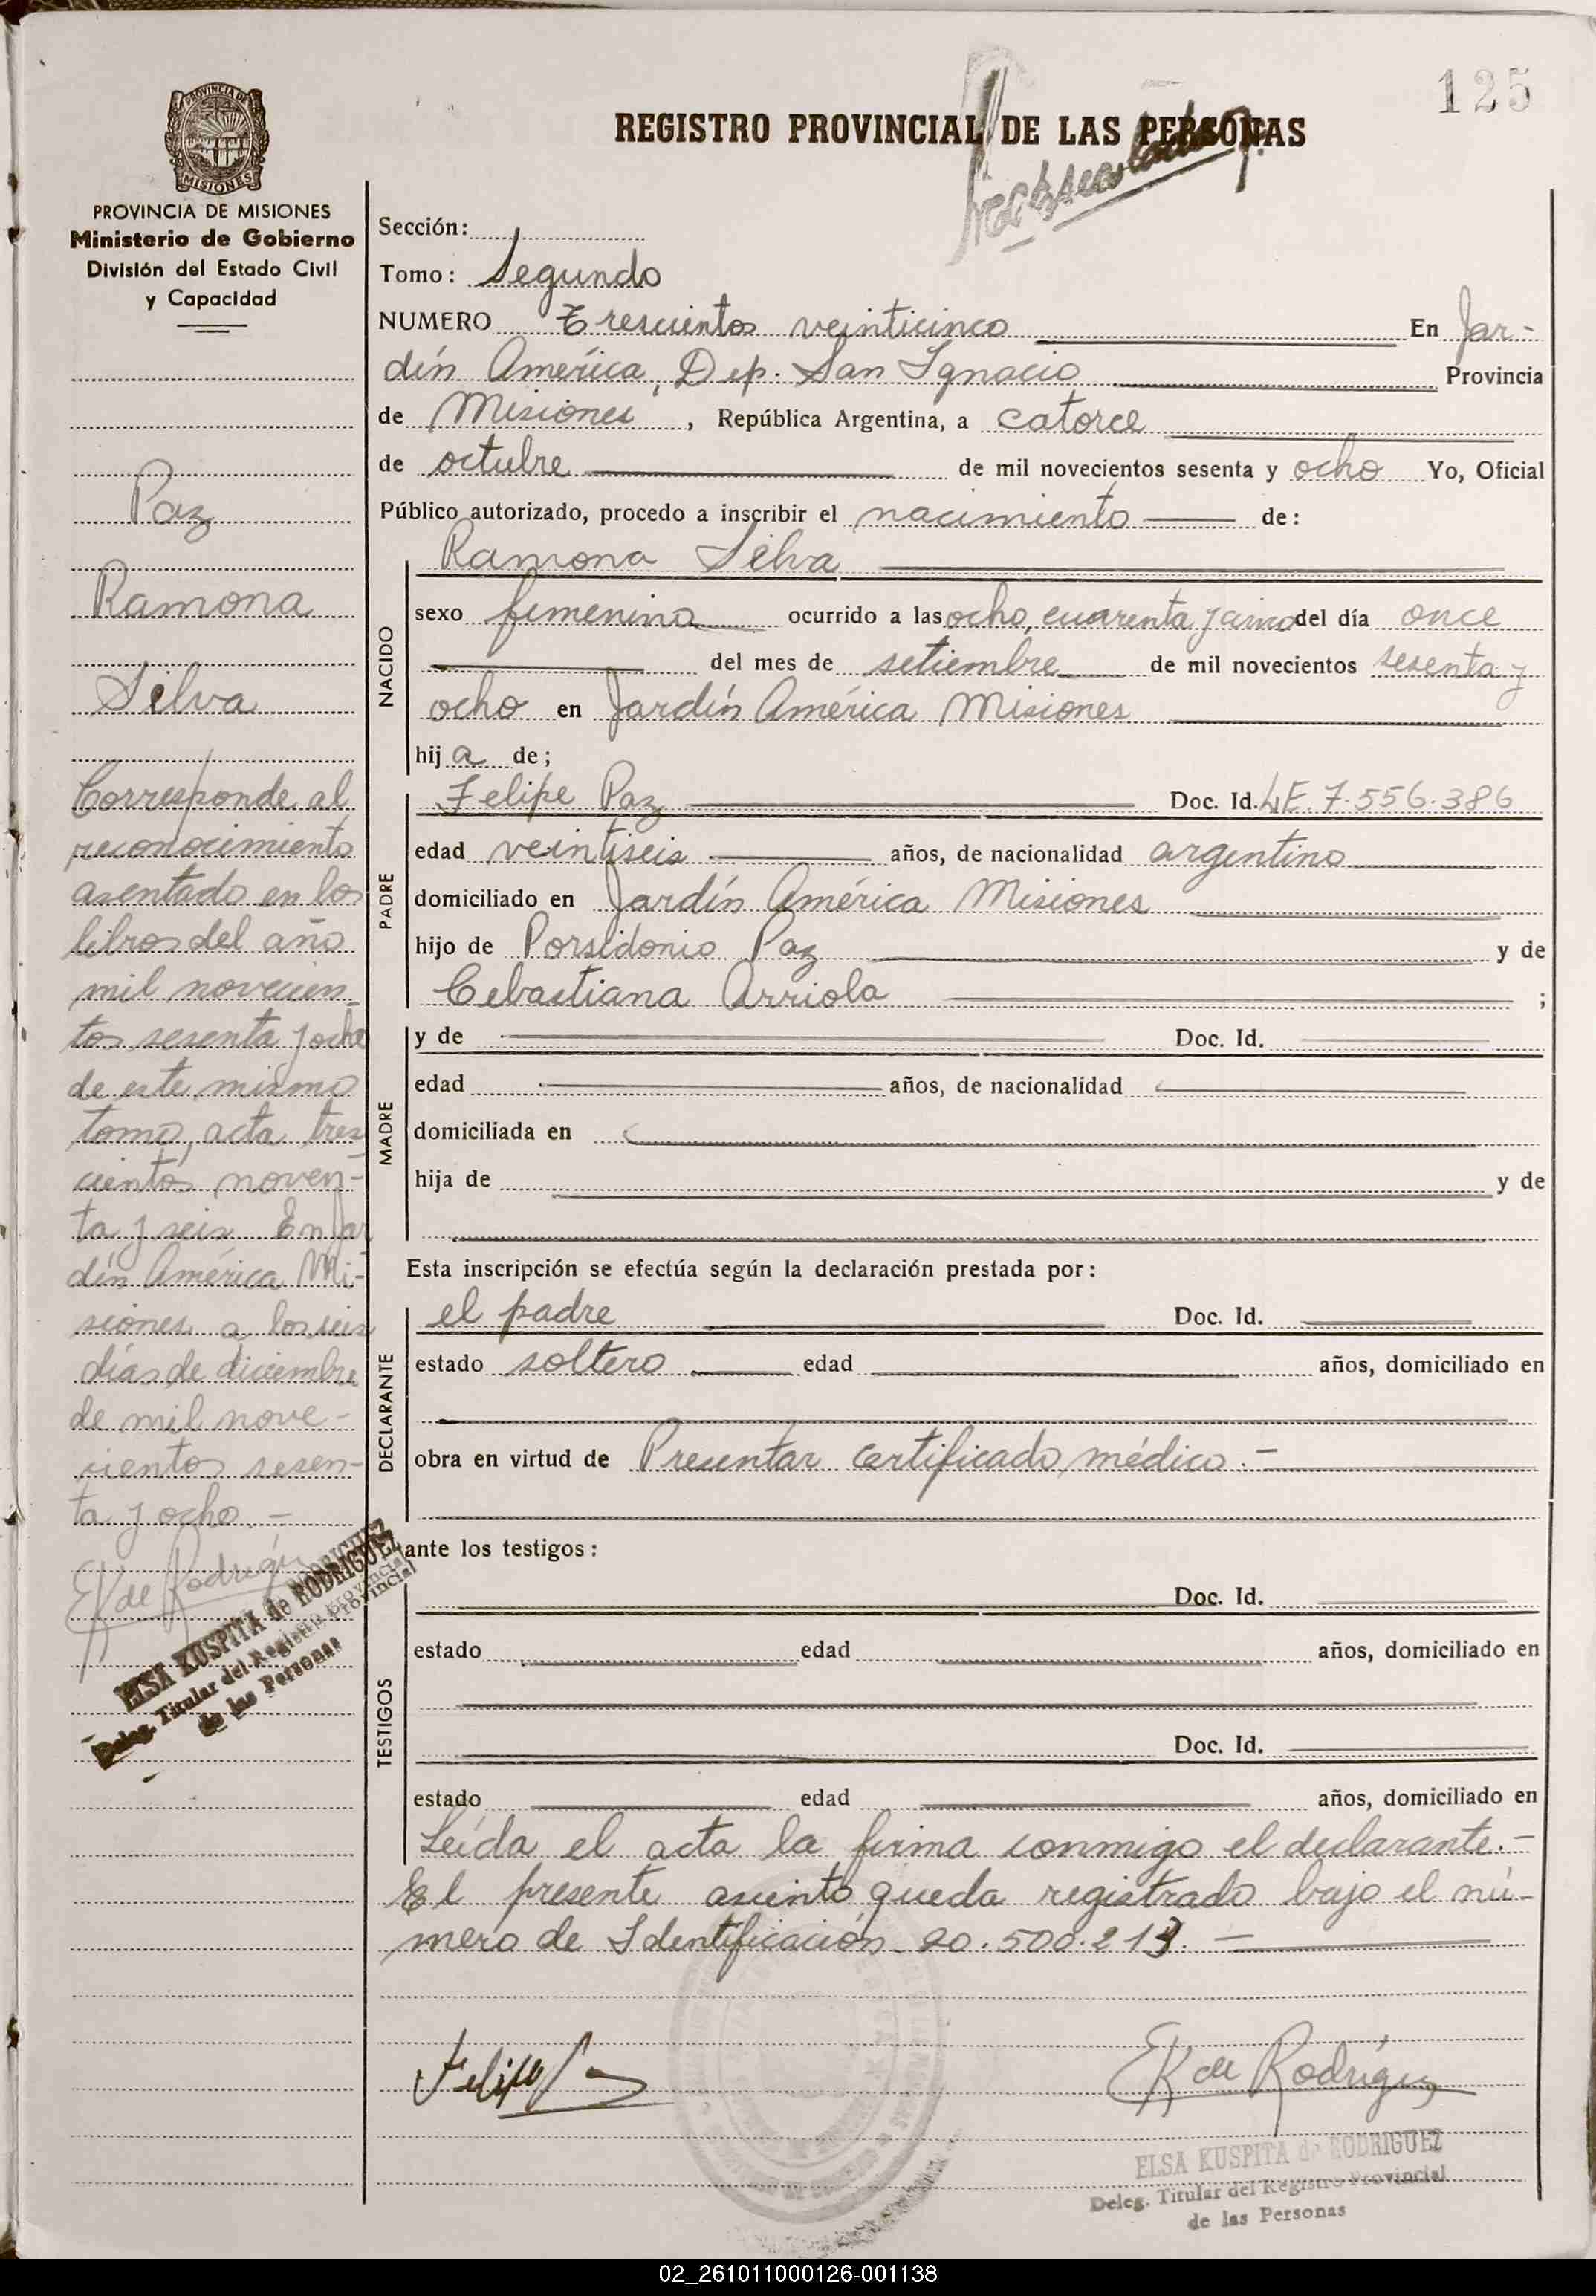 125
REGISTRO PROVINCIAL DE LAS PERSONAS
PROVINCIA DE MISIONES
PROVINCIA DE MISIONES
Ministerio de Gobierno
División del Estado Civil
y Capacidad
Paz
Ramona
Silva
Corresponde al
reconocimiento
asentado en los
libros del año
mil novecien-
tos sesenta y ocho
de este mismo
tomo, acta tres
cientos noven-
ta y seis En Jar
dín América Mi-
siones a los seis
días de diciembre
de mil nove-
cientos sesen-
ta y ocho.-
EK de Rodriguez
ELSA KUSPITA de RODRIGUEZ
Deleg. Titular del Registro Provincial
de las Personas
Sección:
Tomo: Segundo
NUMERO Trescientos veinticinco En Jar-
dín América, Dep. San Ignacio Provincia
de Misiones, República Argentina, a catorce
de octubre de mil novecientos sesenta y ocho Yo, Oficial
Público autorizado, procedo a inscribir el nacimiento de:
Ramona Silva
NACIDO
sexo femenino ocurrido a las ocho, cuarenta y cinco del día once
del mes de setiembre de mil novecientos sesenta y
ocho en Jardín América Misiones
hija de;
PADRE
Felipe Paz Doc. Id. LE. 7.556.386
edad veintiseis años, de nacionalidad argentino
domiciliado en Jardín América Misiones
hijo de Porsidonio Paz y de
Cebastiana Arriola ;
MADRE
y de Doc. Id.
edad años, de nacionalidad
domiciliada en
hija de y de
Esta inscripción se efectúa según la declaración prestada por:
DECLARANTE
el padre Doc. Id.
estado soltero edad años, domiciliado en
obra en virtud de Presentar certificado médico.-
ante los testigos:
TESTIGOS
Doc. Id.
estado edad años, domiciliado en
Doc. Id.
estado edad años, domiciliado en
Leída el acta la firma conmigo el declarante.-
El presente asiento queda registrado bajo el nú-
mero de Identificación 20.500.213.-
Felipe Paz
EK de Rodriguez
ELSA KUSPITA de RODRIGUEZ
Deleg. Titular del Registro Provincial
de las Personas
02_261011000126-001138